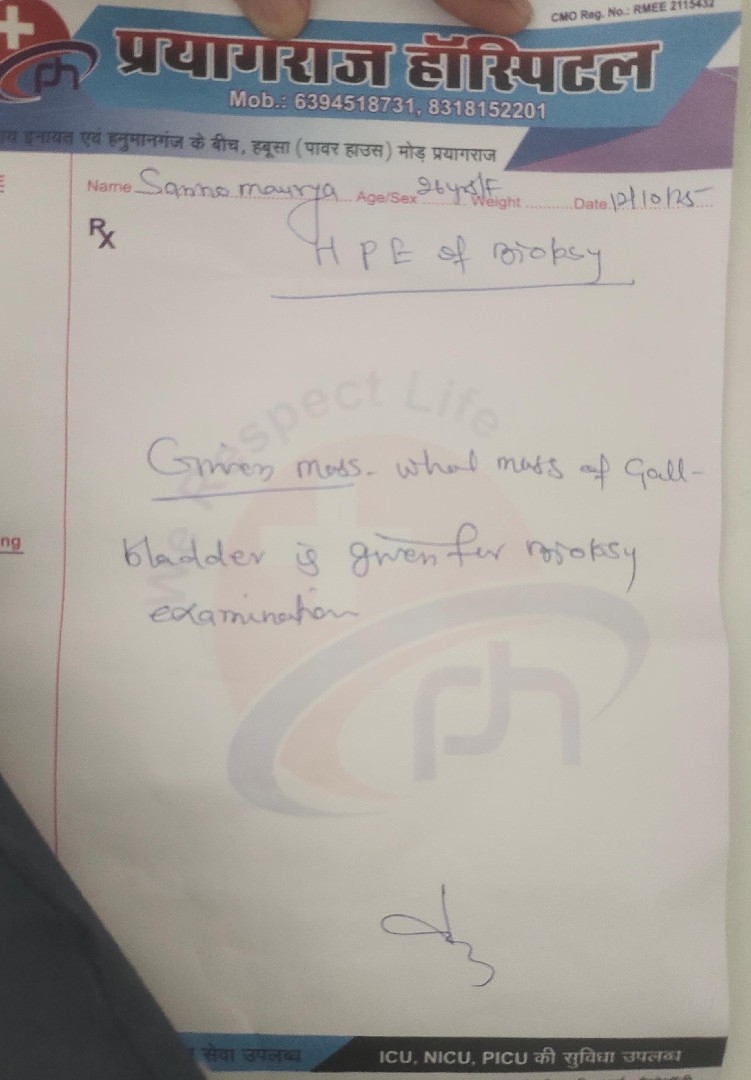 CMO Reg. No.: RMEE 2115432
ph प्रयागराज हॉस्पिटल
Mob.: 6394518731, 8318152201
इनायत एवं हनुमानगंज के बीच, हबूसा (पावर हाउस) मोड़ प्रयागराज
Name Sanno maurya Age/Sex 26yrs/F Weight Date 12/10/25
Rx
HPE of Biopsy
We Respect Life
Given mass. whol mass of Gall-
ng
bladder is given for Biopsy
examination
ph
सेवा उपलब्ध
ICU, NICU, PICU की सुविधा उपलब्ध